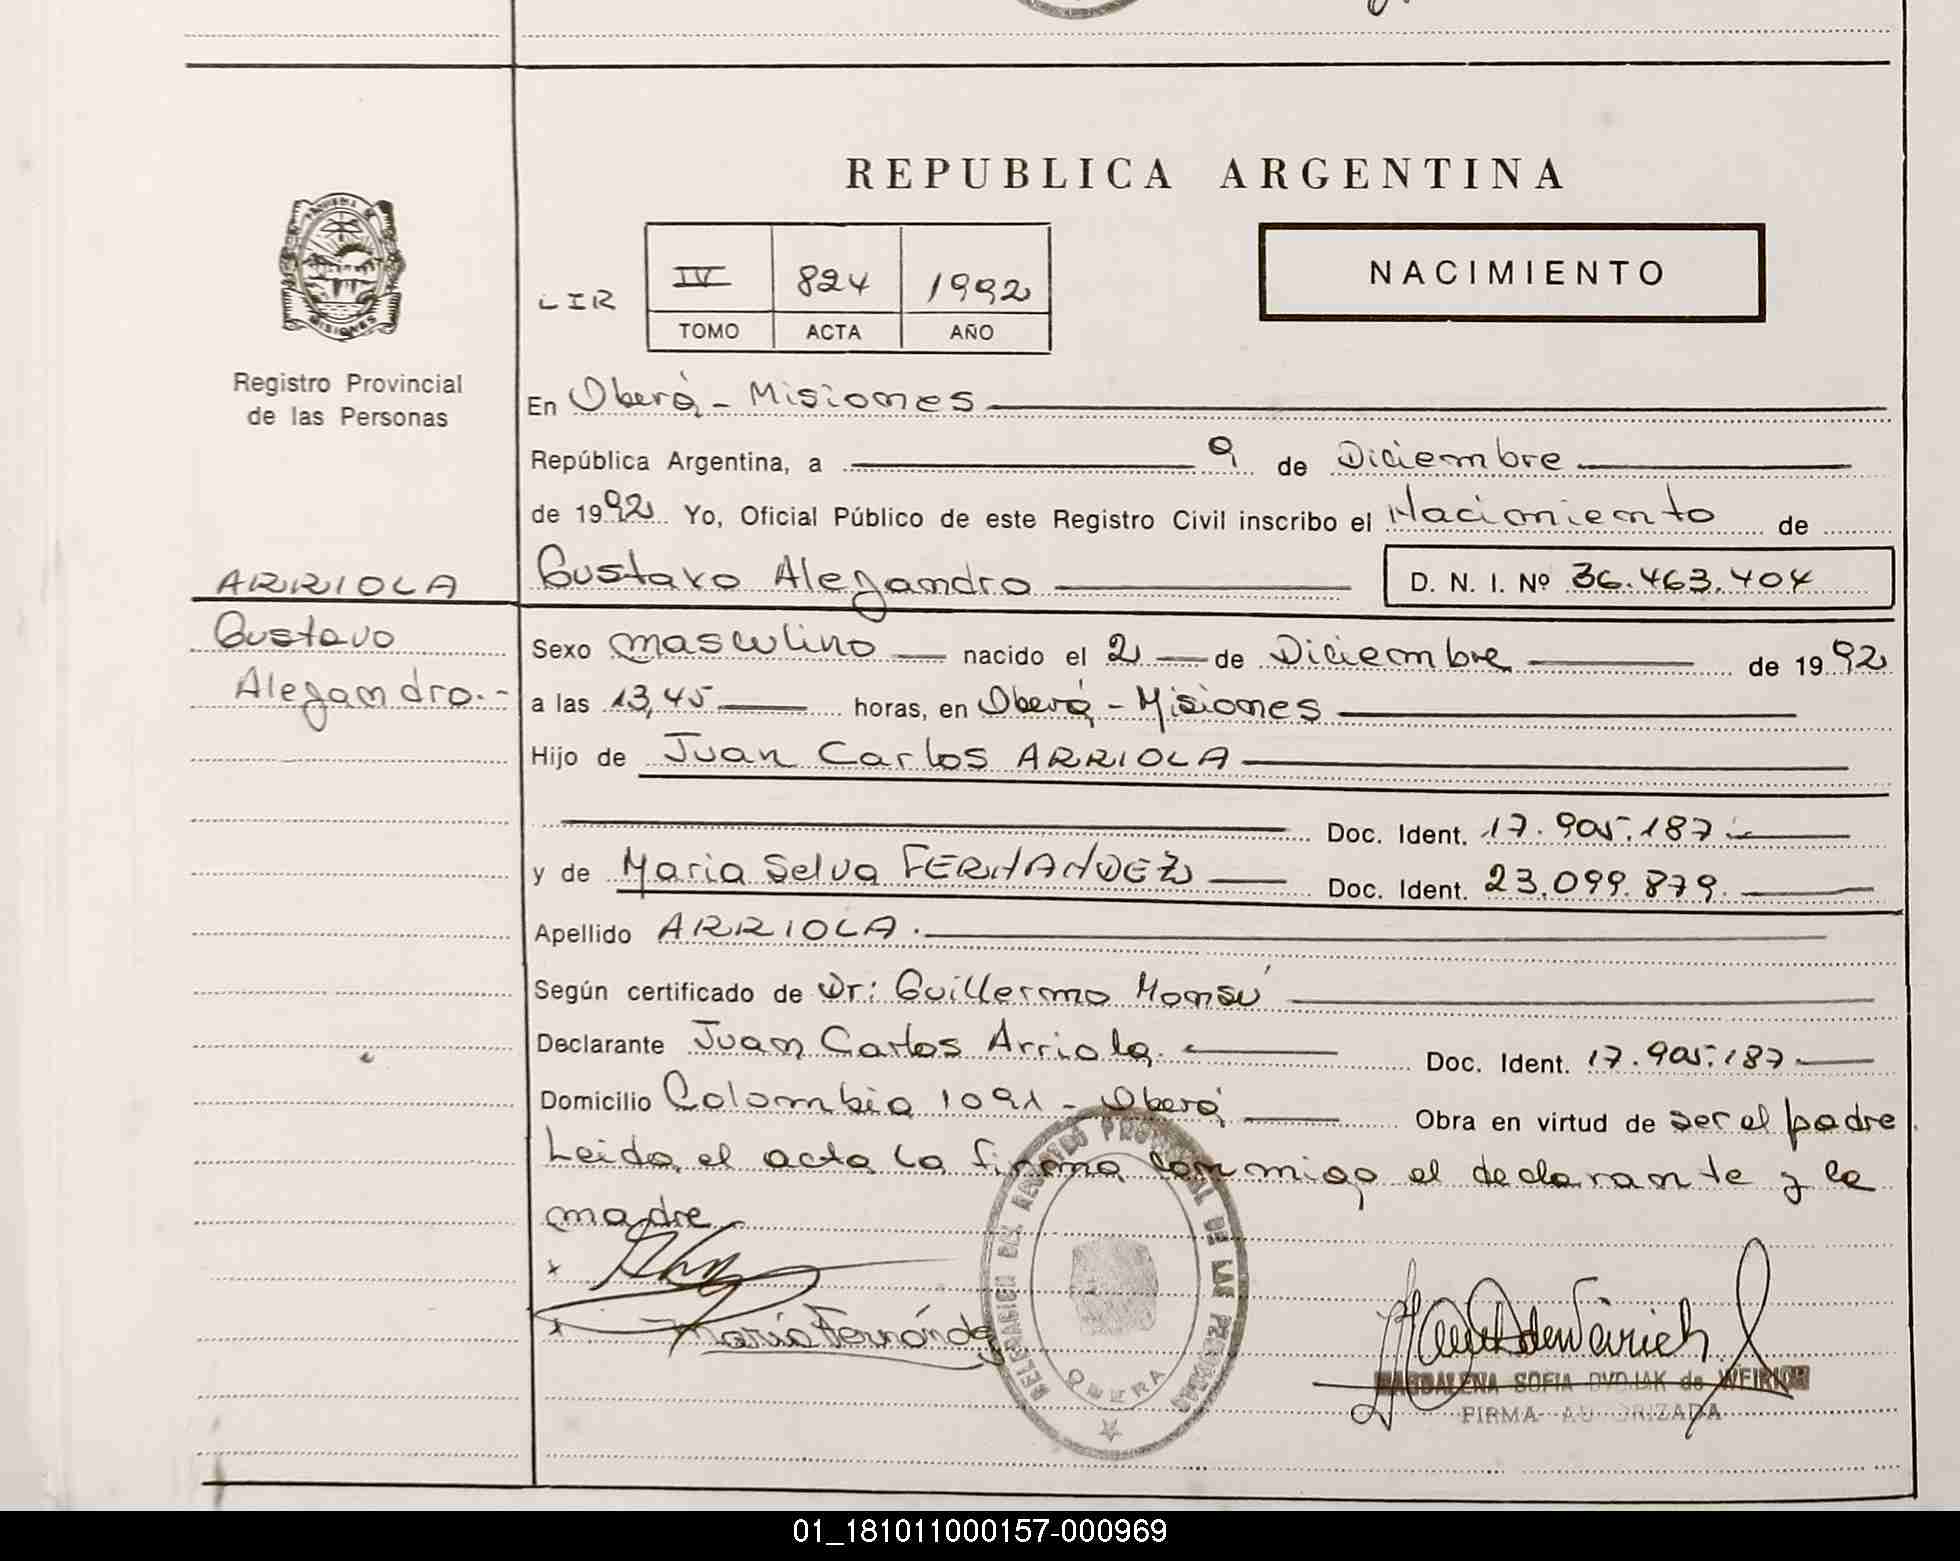 REPUBLICA ARGENTINA
LIR
IV 824 1992
TOMO ACTA AÑO
NACIMIENTO
MISIONES
Registro Provincial
de las Personas
ARRIOLA
Gustavo
Alejandro.-
En Oberá - Misiones
República Argentina, a 9 de Diciembre
de 1992 Yo, Oficial Público de este Registro Civil inscribo el Nacimiento de
Gustavo Alejandro D. N. I. Nº 36.463.404
Sexo masculino nacido el 2 de Diciembre de 1992
a las 13,45 horas, en Oberá - Misiones
Hijo de Juan Carlos ARRIOLA
Doc. Ident. 17.905.187.-
y de Maria Selva FERNANDEZ Doc. Ident. 23.099.879.
Apellido ARRIOLA.
Según certificado de Dr: Guillermo Monsú
Declarante Juan Carlos Arriola. Doc. Ident. 17.905.187
Domicilio Colombia 1091 - Oberá Obra en virtud de ser el padre.
Leida el acta la firma conmigo el declarante y la
madre.
x
x María Fernández
DELEGACION DEL REGISTRO PROVINCIAL DE LAS PERSONAS
OBERA
MAGDALENA SOFIA DVOJAK de WEIRICH
FIRMA AUTORIZADA
01_181011000157-000969